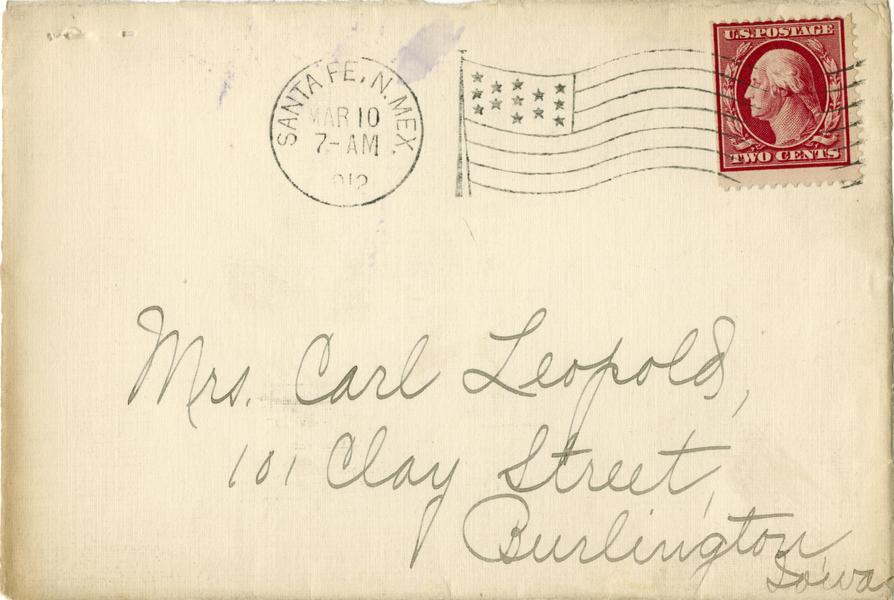 U.S. POSTAGE
TWO CENTS
SANTA FE, N. MEX.
MAR 10
7-AM
1912
Mrs. Carl Leopold,
101 Clay Street,
Burlington
Iowa